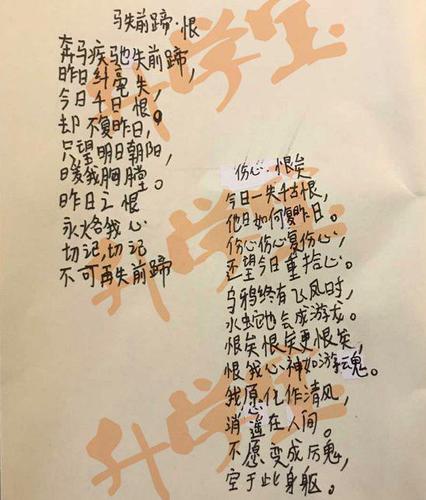 马失前蹄·恨
奔马疾驰失前蹄,
昨日纤毫失,
今日千日恨。
却不复昨日,
只望明日朝阳,
暖我胸膛。
昨日之恨
永烙我心
切记,切记
不可再失前蹄
伤心·恨矣
今日一失千古恨,
他日如何复昨日。
伤心伤心复伤心,
还望今日重拾心。
乌鸦终有飞凤时,
水蛇也会成游龙。
恨矣恨矣更恨矣,
恨我心神如游魂。
我愿化作清风,
消遥在人间。
不愿变成厉鬼,
空于此身躯。
升学宝
升学宝
升学宝